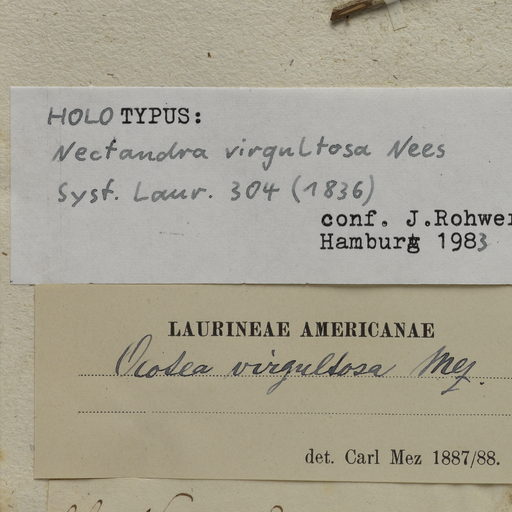 HOLO TYPUS:
Nectandra virgultosa Nees
Syst. Laur. 304 (1836)
conf. J.Rohwer
Hamburg 1983
LAURINEAE AMERICANAE
Ocotea virgultosa Mez.
det. Carl Mez 1887/88.